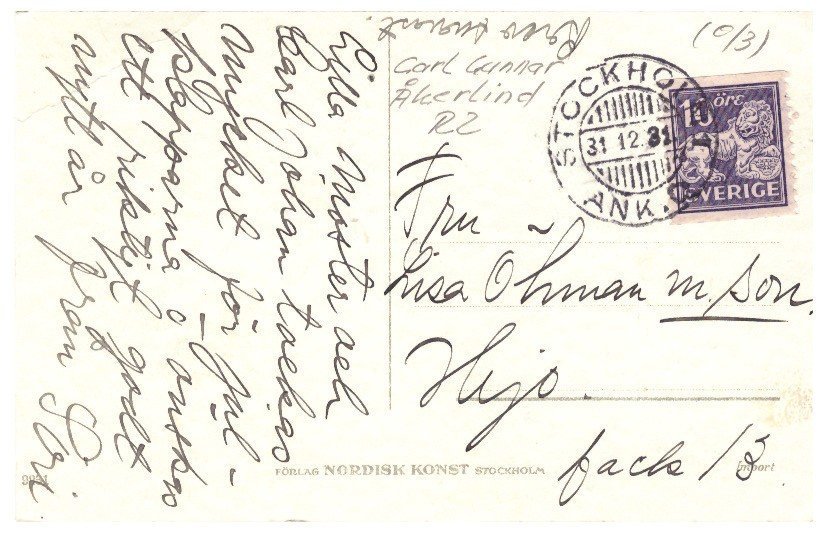 Lilla Moster och
Karl Johan tackas
mycket för jul-
klapparna o önskas
ett riktigt godt
nytt år från
(0/3)
Carl Gunnar
Åkerlind
R2
STOCKHOLM
31.12.31
ANK.
10 ÖRE
SVERIGE
Fru
Lisa Öhman m. son.
Hjo.
fack 13
FÖRLAG NORDISK KONST STOCKHOLM
Import